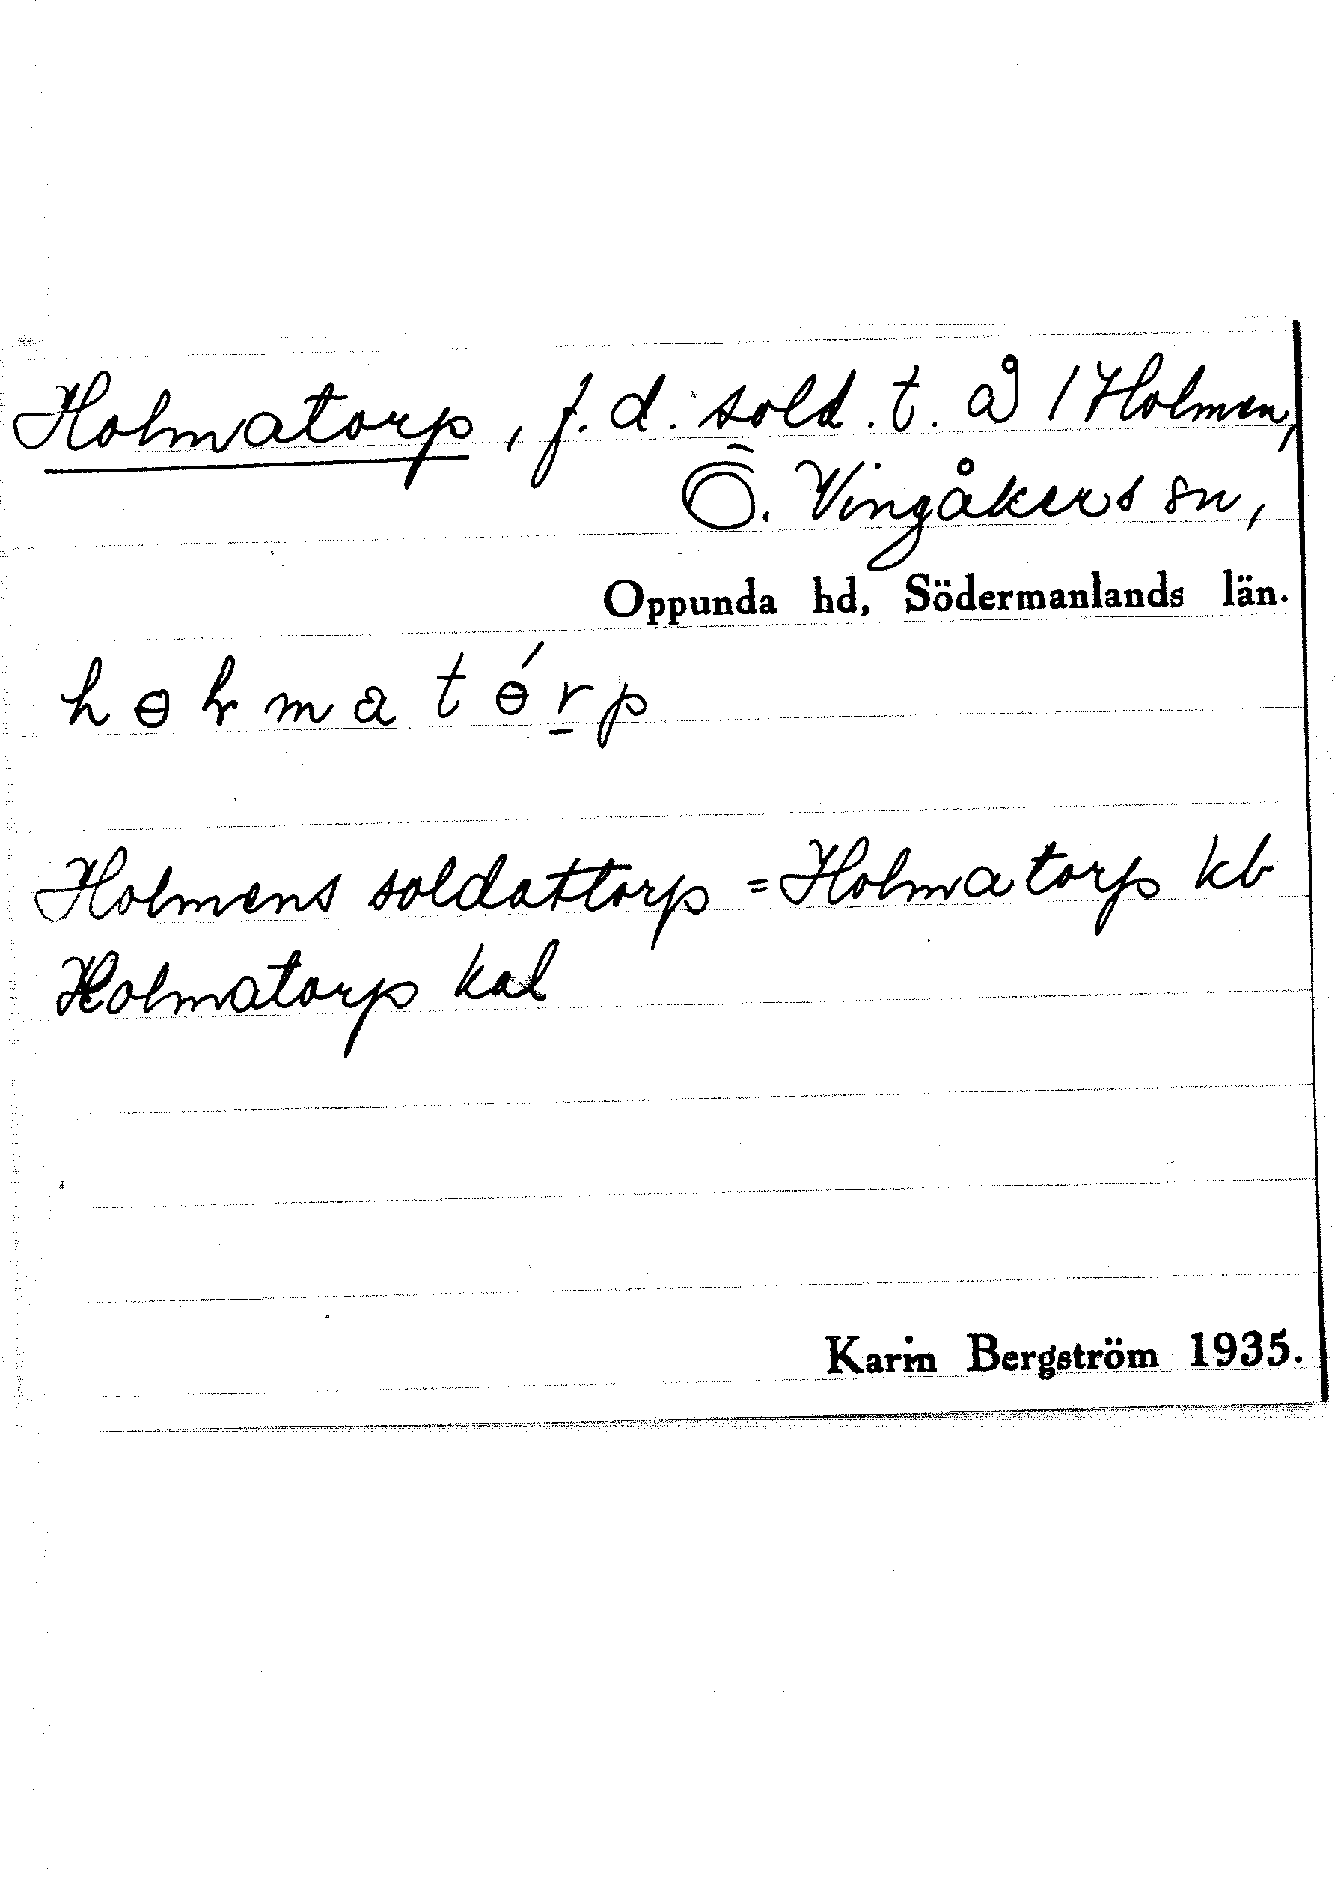 Holmatorp, f.d. sold.t. å 1 Holmen,
Ö. Vingåkers sn,
Oppunda hd, Södermanlands län.
Holmens soldattorp = Holmatorp kb
Holmatorp kal
Karin Bergström 1935.